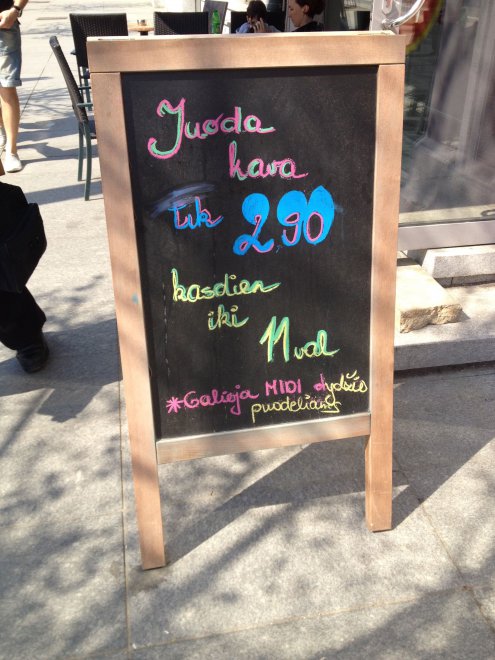 Juoda
kava
tik 2,90
kasdien
iki
11 val
*Galioja MIDI dydžio
puodeliams